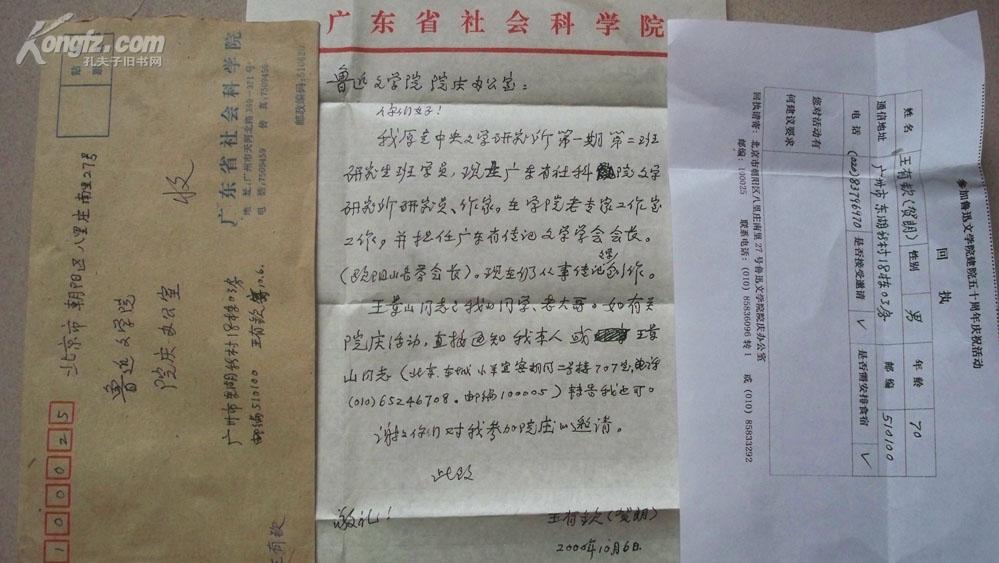 Kongfz.com
孔夫子旧书网
100025
北京市朝阳区八里庄南里27号
鲁迅文学院
院庆办公室
收
广州市东湖新村18栋03房
邮编510100 王有钦寄10.6.
广东省社会科学院
地址:广州市天河北路369-371号
电挂:7509459 传真:7509456
邮政编码:510620
王有钦
广东省社会科学院
鲁迅文学院院庆办公室:
你们好!
我原是中央文学研究所第一期第二班
研究生班学员,现是广东省社科院文学
研究所研究员、作家。在学院老专家工作室
工作,并担任广东省传记文学学会会长。
(欧阳山名誉会长)。现在仍从事传记文学创作。
王景山同志是我的同学、老大哥。如有关
院庆活动,直接通知我本人或王景
山同志(北京东城小羊宜宾胡同二号楼707室,电话
(010)65246708.邮编100005)转告我也可。
谢谢你们对我参加院庆的邀请。
此致
敬礼!
王有钦(贺朗)
2000年10月6日.
参加鲁迅文学院建院五十周年庆祝活动
回 执
姓名 王有钦(贺朗) 性别 男 年龄 70
通信地址 广州市东湖新村18栋03房 邮编 510100
电话 (020)83796970 是否接受邀请 √ 是否需安排食宿 √
您对活动有
何建议要求
回执请寄:北京市朝阳区八里庄南里27号鲁迅文学院院庆办公室
邮编:100025 联系电话:(010)85836096转1 或(010)85833292